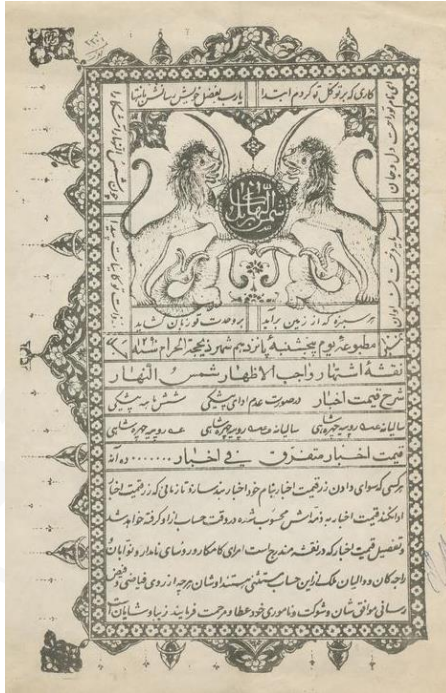 کاری که بر توکل تو کردم ابتدا
یا رب بفضل خویش بسانش بانتها
ای نام تو راحت دل و جان
شمس النهار کابل
هر سبزه که از زمین برآید
بر وحدت تو زبان گشاید
مطبوعهٔ یوم پنجشنبهٔ پانزدهم شهر ذیحجة الحرام سنه
نقشهٔ اشتهار واجب الاظهار شمس النهار
شرح قیمت اخبار در صورت عدم ادای پیشگی ششماهه پیشگی
سالیانه روپیه چهره شاهی سالیانه روپیه چهره شاهی روپیه چهره شاهی
قیمت اخبار متفرق فی اخبار ........ ده آنه
هر کسی که سوای دادن زر قیمت اخبار بنام خود اخبار بند سازد تا زمانی که زر قیمت اخبار
ادا نکند قیمت اخبار بذمه اش محسوب شده در وقت حساب ازو گرفته خواهد شد
و تفصیل قیمت اخبار که در نقشه مندرج است امرای کامکار و روسای نامدار و نوابان و
راجه کان و والیان ملک از این حساب مستثنی هستند اوشان هرچه از روی فیاضی و فیض
رسانی موافق شان و شوکت و ناموری خود عطا و مرحمت فرمایند زیبا و شایان است